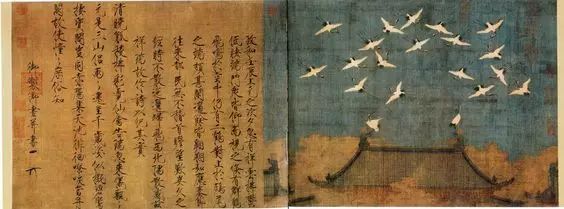 政和壬辰上元之次夕忽有祥雲拂鬱
低映端門衆皆仰而視之倏有群鶴
飛鳴於空中仍有二鶴對止於鴟尾
之端頗甚閑適餘皆翱翔如應奏節
往來都民無不稽首瞻望歎異久之
經時不散迤邐歸飛西北隅散感茲
祥瑞故作詩以紀其實
清曉觚稜拂彩霓仙禽告瑞忽來儀飄飄
元是三山侶兩兩還呈千歲姿似擬碧鸞
棲寶閣豈同赤雁集天池徘徊嘹唳當丹
闕故使憧憧庶俗知
御製御畫并書